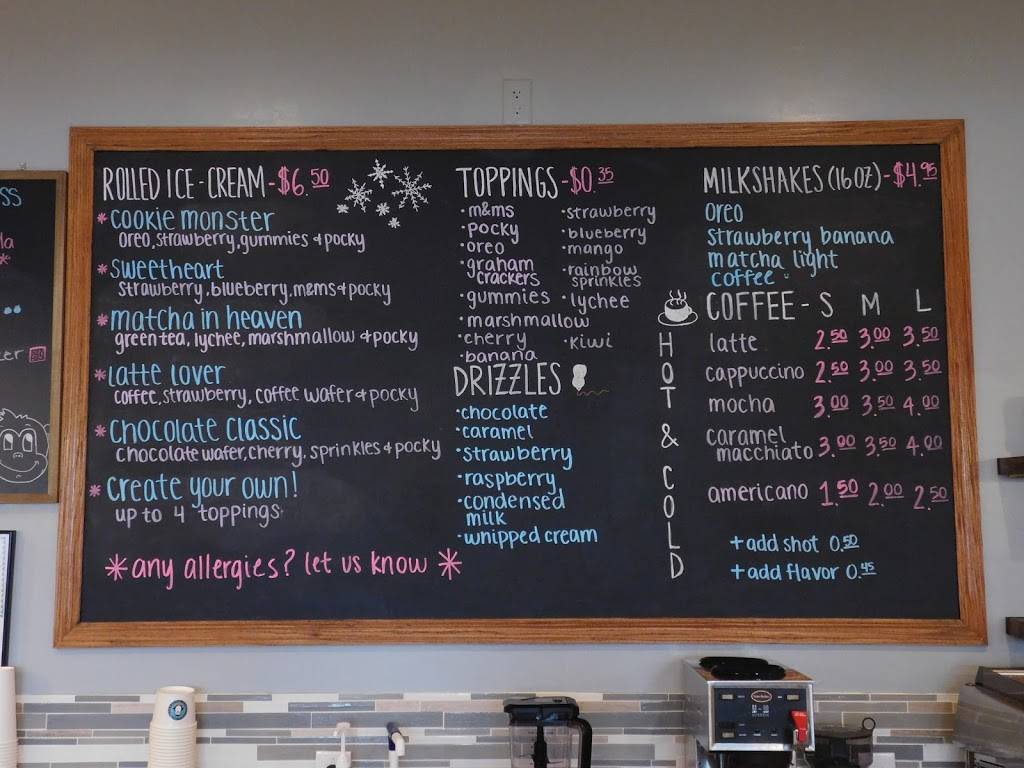 SS
la
er
ROLLED ICE-CREAM-$6.50
*cookie monster
oreo, strawberry, gummies & pocky
*sweetheart
strawberry, blueberry, m&ms & pocky
*matcha in heaven
green tea, lychee, marshmallow & pocky
*latte lover
coffee, strawberry, coffee wafer & pocky
*chocolate classic
chocolate wafer, cherry, sprinkles & pocky
*create your own!
up to 4 toppings
*any allergies? let us know*
TOPPINGS-$0.35
·m&ms
·pocky
·oreo
·graham
crackers
·gummies
·marshmallow
·cherry
·banana
·strawberry
·blueberry
·mango
·rainbow
sprinkles
·lychee
·kiwi
DRIZZLES
·chocolate
·caramel
·strawberry
·raspberry
·condensed
milk
·whipped cream
MILKSHAKES (16OZ)-$4.95
oreo
strawberry banana
matcha light
coffee
HOT & COLD
COFFEE - S M L
latte 2.50 3.00 3.50
cappuccino 2.50 3.00 3.50
mocha 3.00 3.50 4.00
caramel
macchiato 3.00 3.50 4.00
americano 1.50 2.00 2.50
+add shot 0.50
+add flavor 0.45